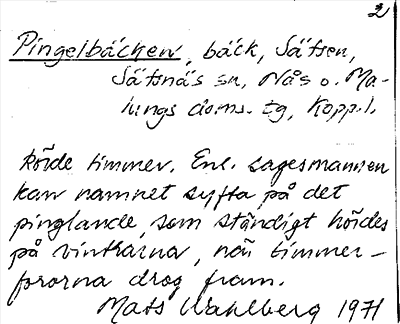 2
Pingelbäcken, bäck, Sätsen,
Sätsnäs sn, Nås o. Ma-
lungs doms. tg, Kopp. l.
körde timmer. Enl. sagesmannen
kan namnet syfta på det
pinglande, som ständigt hördes
på vintrarna, när timmer-
fororna drog fram.
Mats Wahlberg 1971